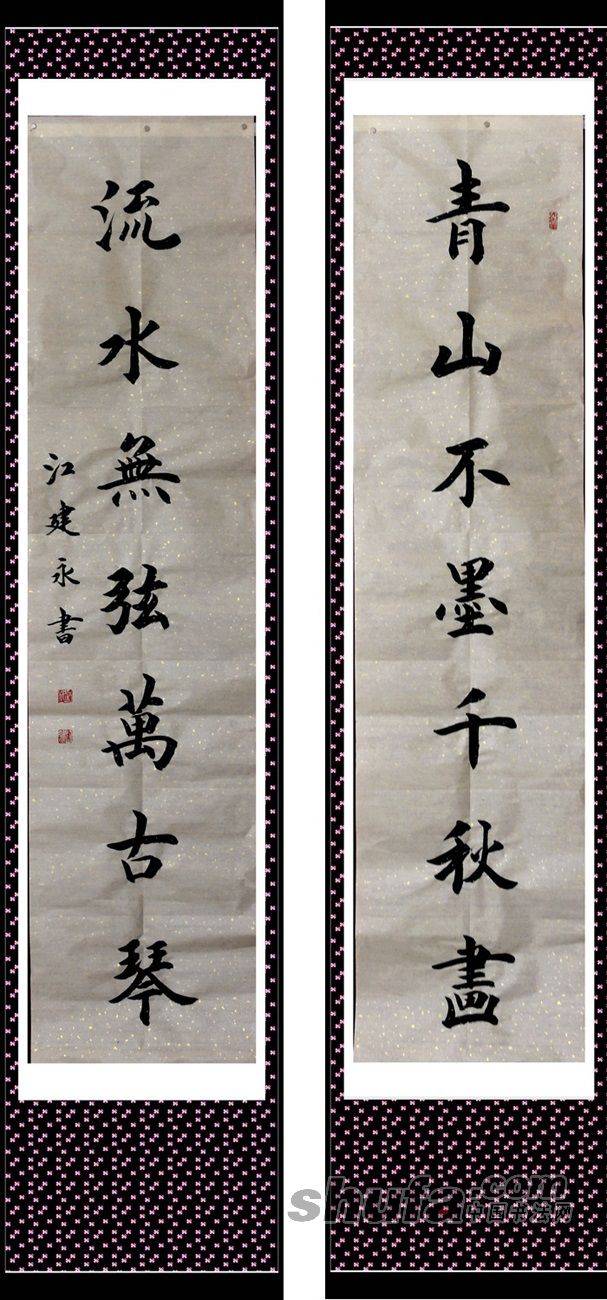 青山不墨千秋畫
流水無弦萬古琴
江建永書
shufa.com
中国书法网